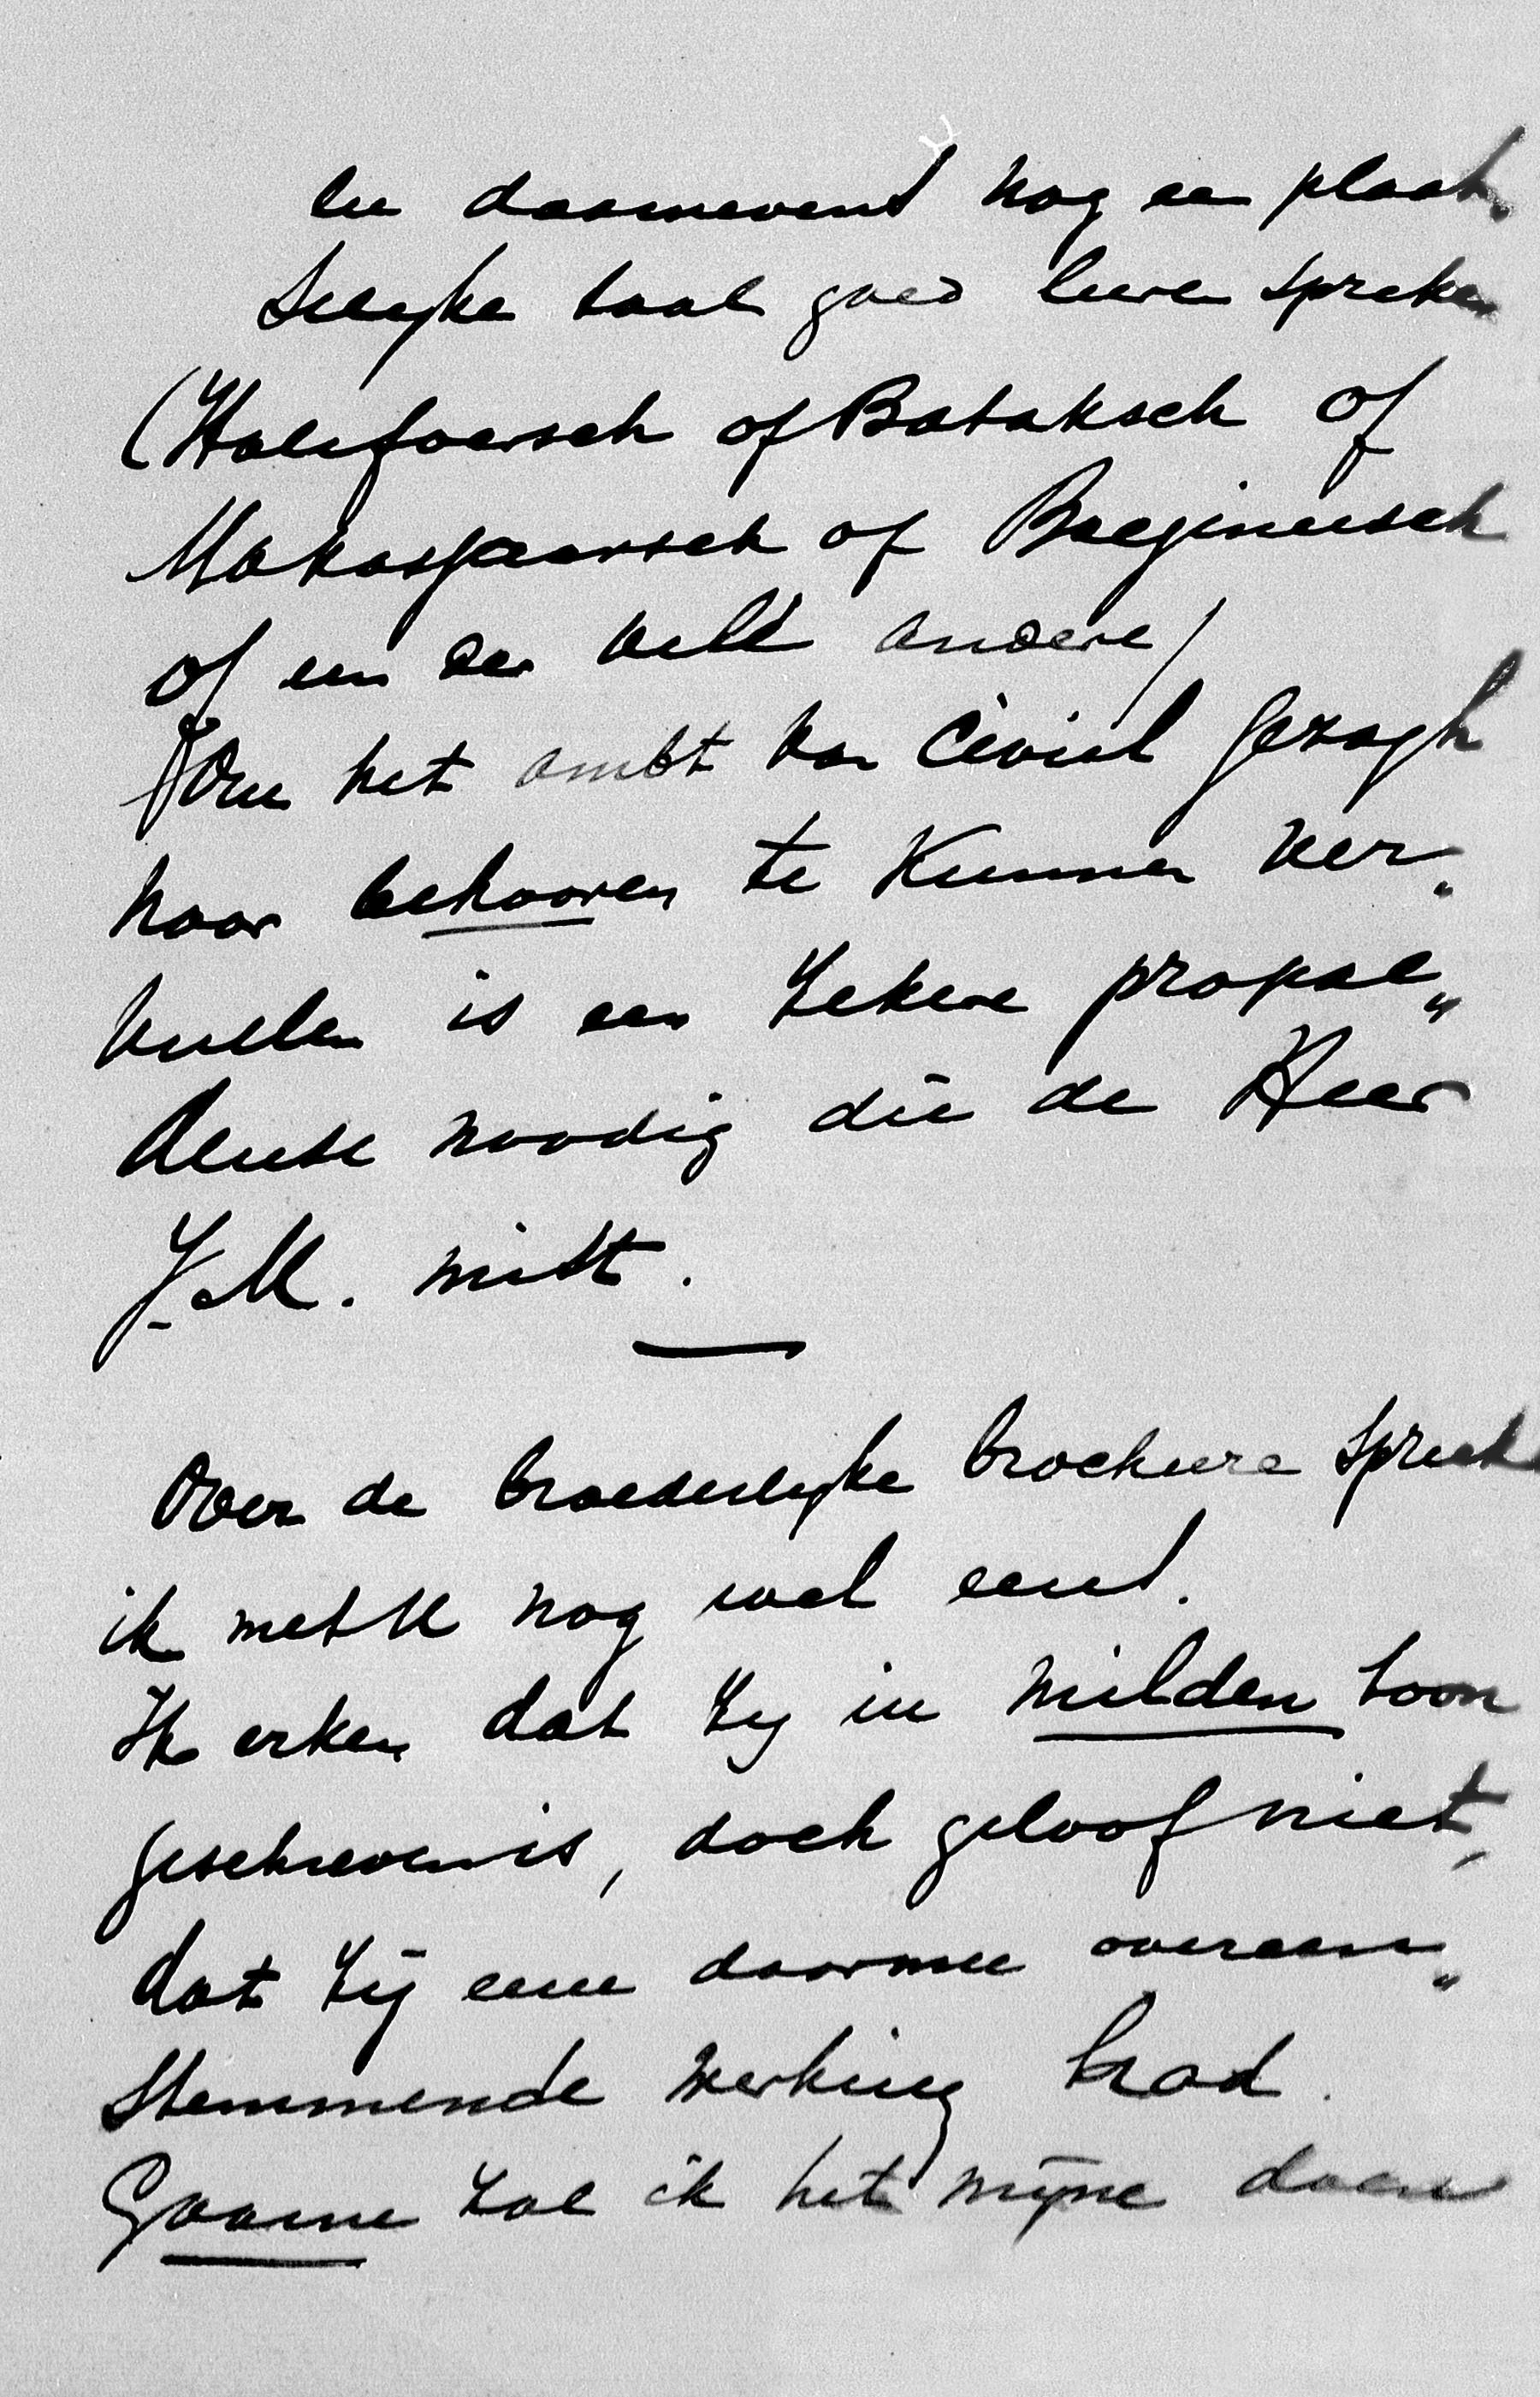 en daarnevens nog een plaat,
selyke taal goed leeren spreken
(Halefoersch of Bataksch of
Makassaarsch of Boegineesch
of een der vele andere)
Om het ambt van Civiel Gezagh
naar behooren te kunnen ver„
vullen is een zekere propae„
deuse noodig die de Heer
J.M. mist.
Over de broederlyke brochure spreek
ik met U nog wel eens.
Ik erken dat zy in milden toon
geschreven is, doch geloof niet,
dat zij eene daarmee overeen„
stemmende werking had.
Gaarne zal ik het mijne doen